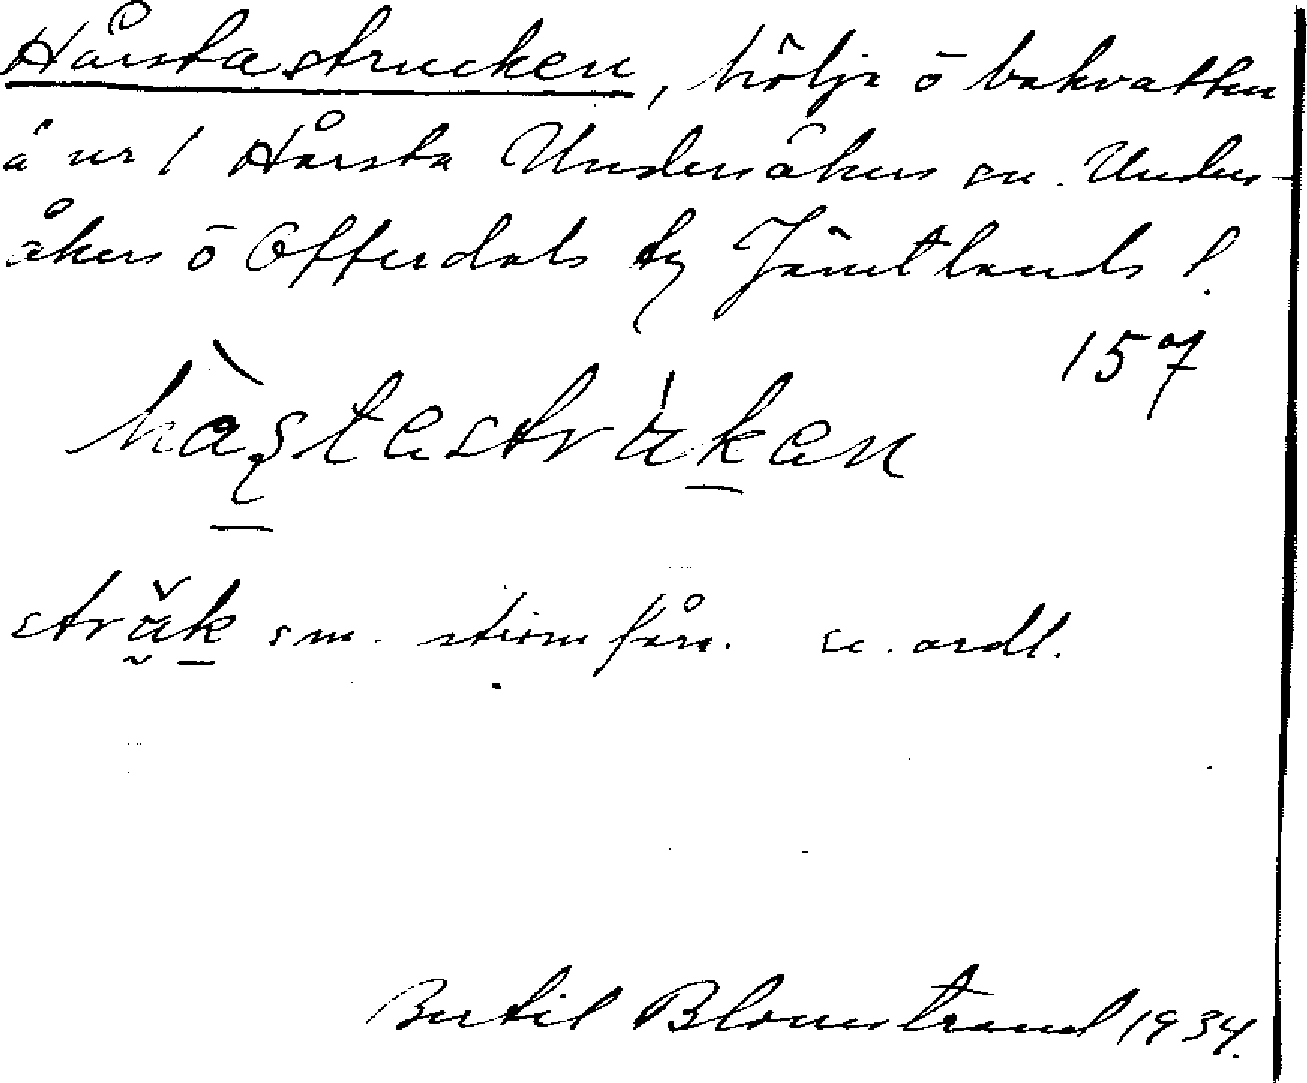 Hårstastrucken, hölja ö bakvatten
å nr 1 Hårsta Undersåkers sn. Under-
åkers ö Offerdals tg Jämtlands l.
157
sm. strömfåra. se. ordl.
Bertil Blomstrand 1934.